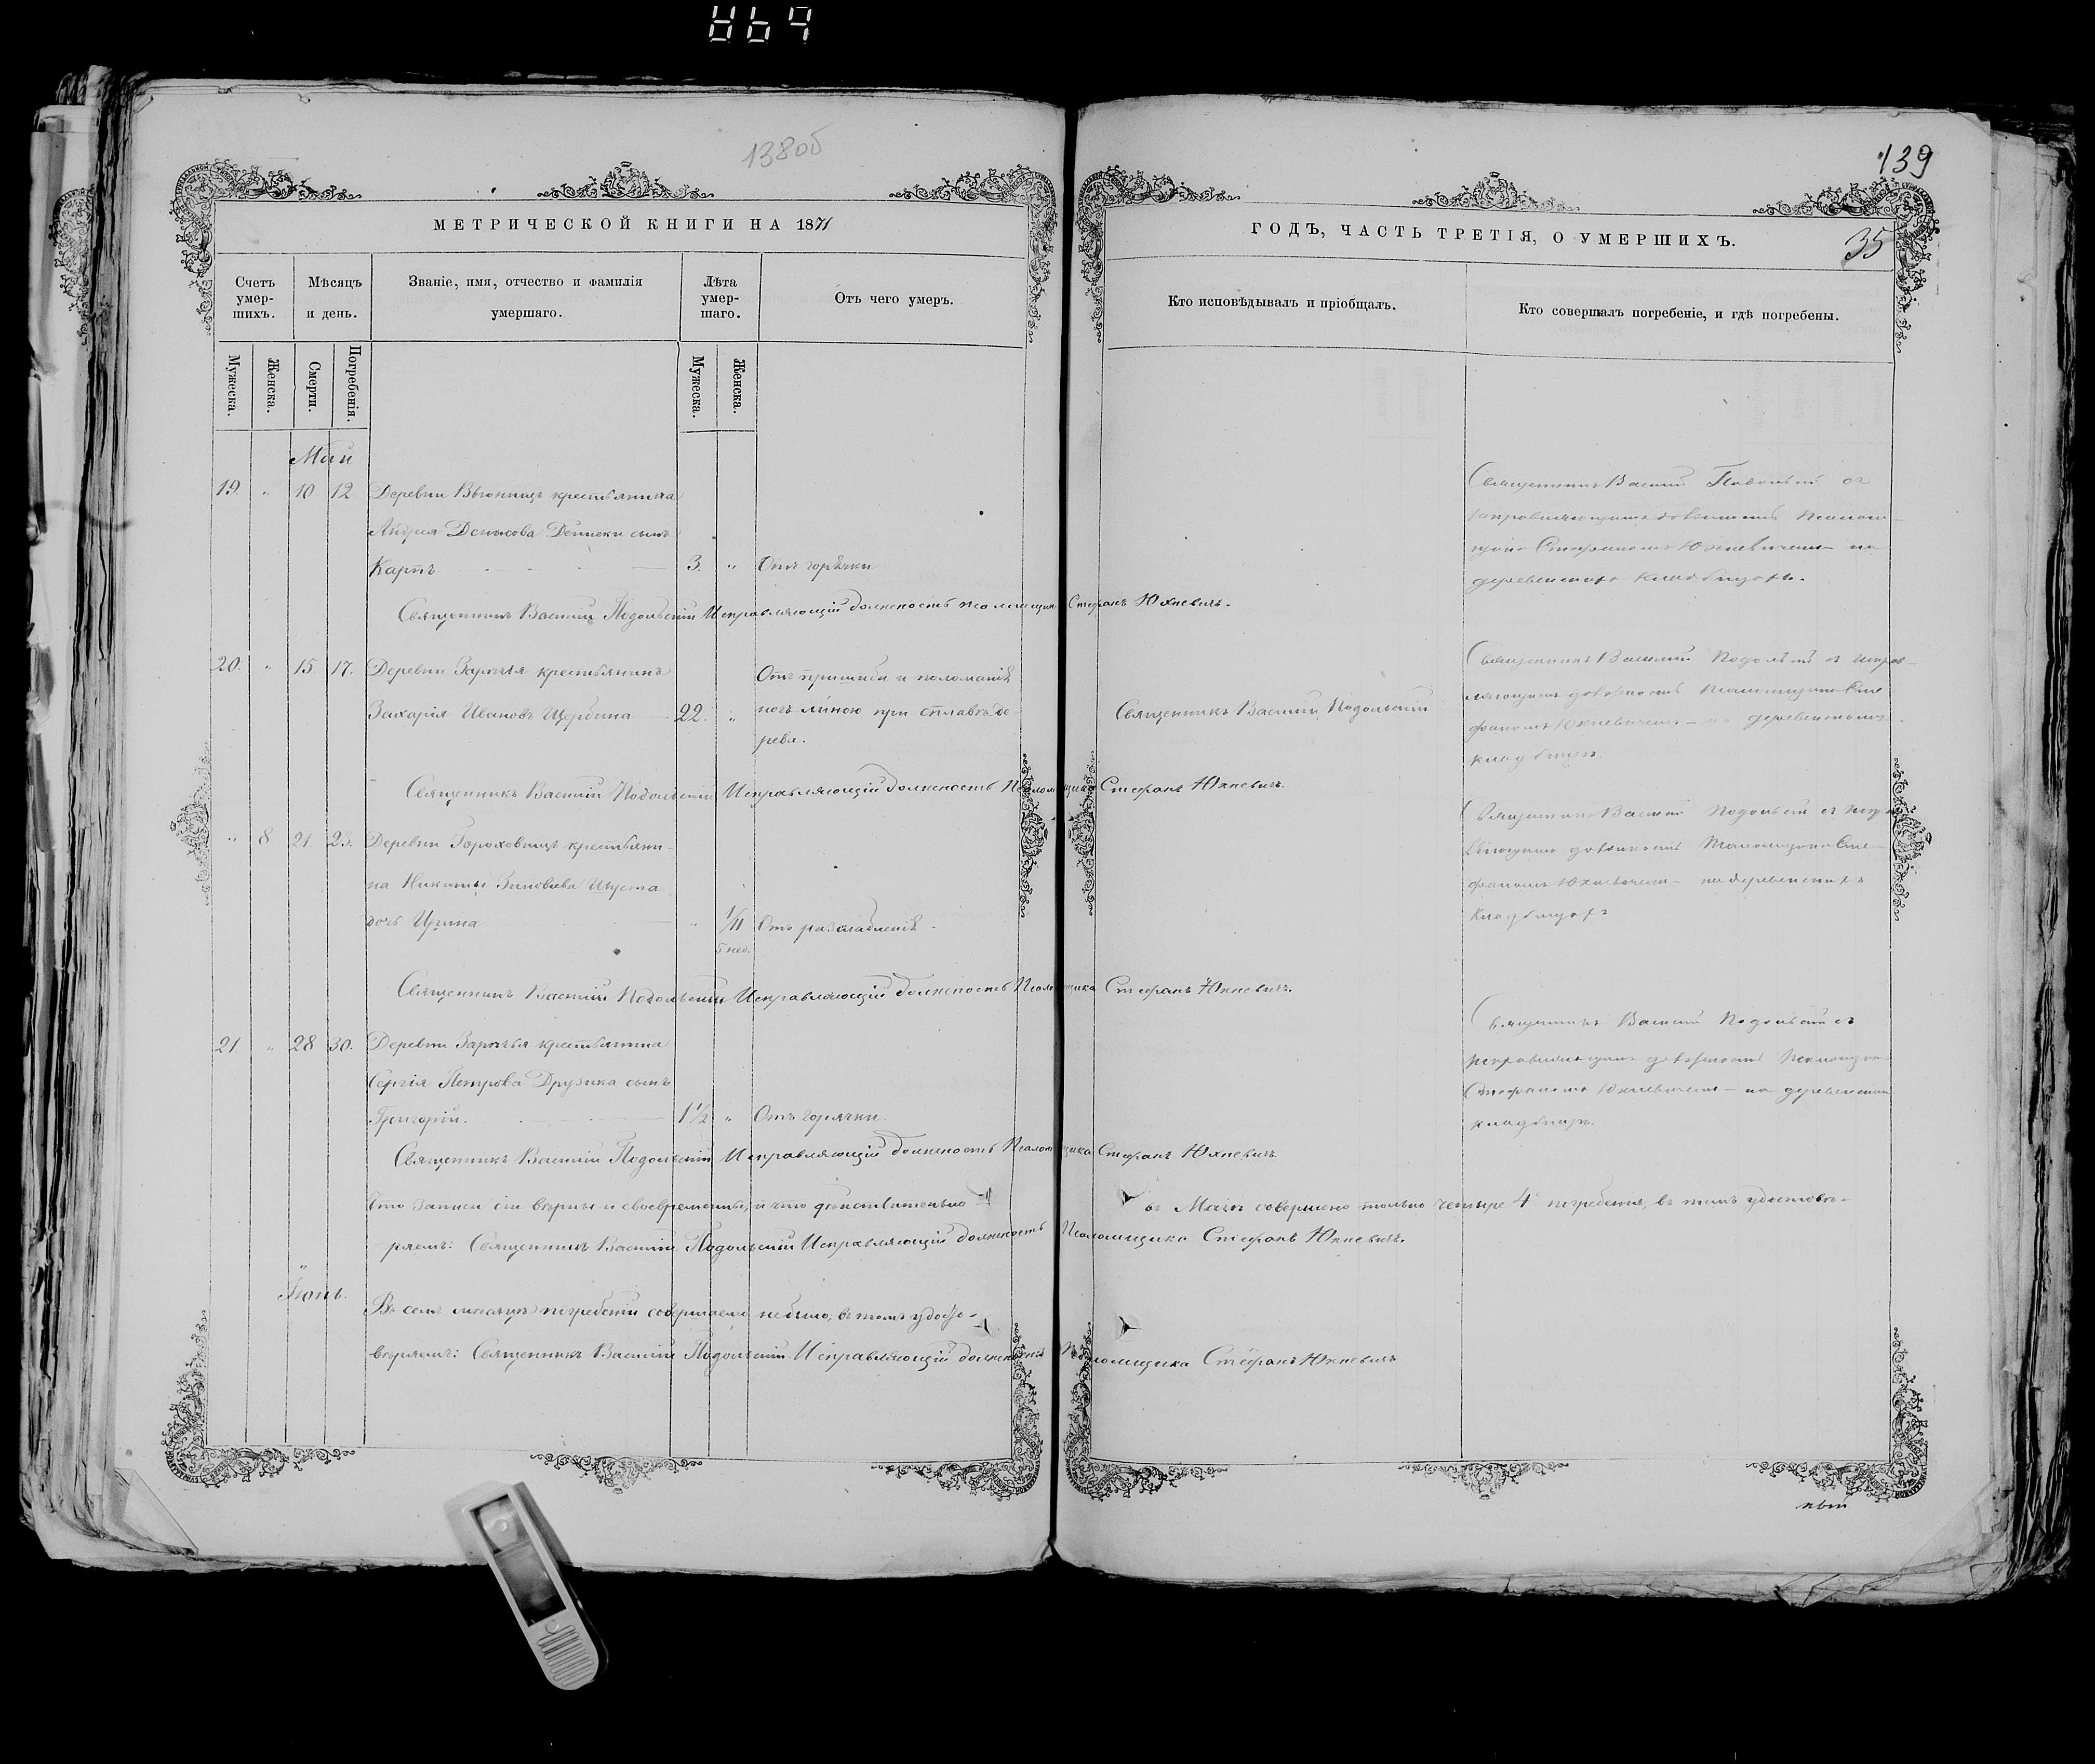 138об
139
МЕТРИЧЕСКОЙ КНИГИ НА 1871
ГОДЪ, ЧАСТЬ ТРЕТІЯ, О УМЕРШИХЪ.
35
Счетъ умер-шихъ.
Мѣсяцъ и день.
Званіе, имя, отчество и фамилія умершаго.
Лѣта умер-шаго.
Отъ чего умеръ.
Кто исповѣдывалъ и пріобщалъ.
Кто совершалъ погребеніе, и гдѣ погребены.
Мужеска.
Женска.
Смерти.
Погребенія.
Мужеска.
Женска.
Май
19. " 10 12. Деревни Вьюнищъ крестьянина
Андрея Денисова сынъ
Карпъ 3. " Отъ горячки
Священникъ Василій Подольскій съ
исправляющимъ должность Псалом-
щика Стефаномъ Юхневичемъ на
деревенскихъ кладбищахъ.
Священникъ Василій Подольскій Исправляющій должность псаломщика Стефанъ Юхневичъ.
20. " 15 17. Деревни Заречья крестьянинъ
Захарія Ивановъ Щербина 22. "
Отъ и поломанія
ногъ при сплавѣ де-
рева.
Священникъ Василій Подольскій
Священникъ Василій Подольскій съ исправ-
ляющимъ должность Псаломщика Сте-
фаномъ Юхневичемъ деревенскомъ
кладбищѣ
Священникъ Василій Подольскій Исправляющій должность Псаломщика Стефанъ Юхневичъ.
" 8 21. 23. Деревни Гороховищъ крестьяни-
на Никиты Зиновіева
дочь " 1/11 Отъ разслабленія.
5 нед.
Священникъ Василій Подольскій съ
должность Псаломщика Сте-
фаномъ Юхневичемъ на деревенскихъ
кладбищахъ
Священникъ Василій Подольскій Исправляющій должность Псаломщика Стефанъ Юхневичъ.
21 " 28 30. Деревни Заречья крестьянина
Сергія Петрова Друзика сынъ
Григорій. 1½ " Отъ горячки.
Священникъ Василій Подольскій съ
исправляющимъ должность Псаломщика
Стефаномъ Юхневичемъ на деревенскомъ
кладбищѣ.
Священникъ Василій Подольскій Исправляющій должность Псаломщика Стефанъ Юхневичъ.
Что записи сіи вѣрны и своевременны, и что дѣйствительно въ Маѣ совершено только четыре 4 погребенія, въ томъ удостовѣ-
ряемъ: Священникъ Василій Подольскій Исправляющій должность Псаломщика Стефанъ Юхневичъ.
Іюнь.
Въ семъ мѣсяцѣ погребеній совершаемо небыло, въ томъ удосто-
вѣряемъ: Священникъ Василій Подольскій Исправляющій должность Псаломщика Стефанъ Юхневичъ